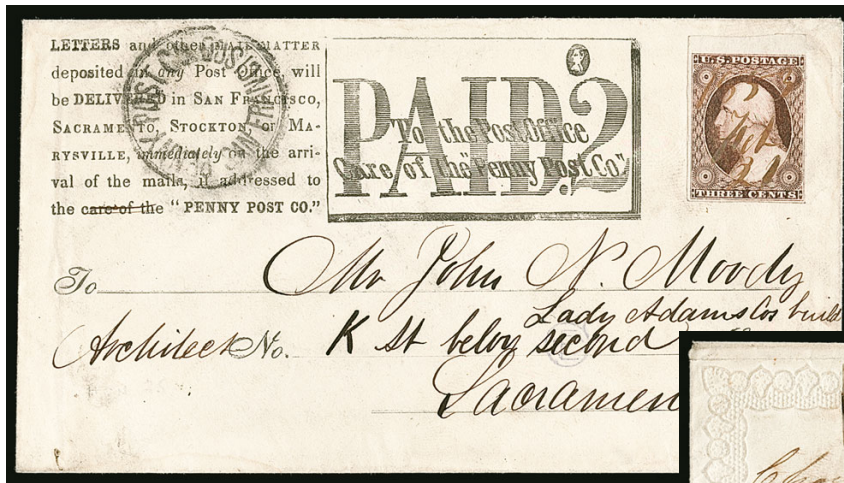 LETTERS and other MAIL MATTER
deposited in any Post Office, will
be DELIVERED in SAN FRANCISCO,
SACRAMENTO, STOCKTON, or MA-
RYSVILLE, immediately on the arri-
val of the mails, if addressed to
the care of the "PENNY POST CO."
PENNY POST CO.
PAID.2
To the Post Office
Care of the "Penny Post Co."
U.S. POSTAGE
THREE CENTS
To Mr John N. Moody
Lady Adams Cos build
Architeck No. K St below second
Sacramen